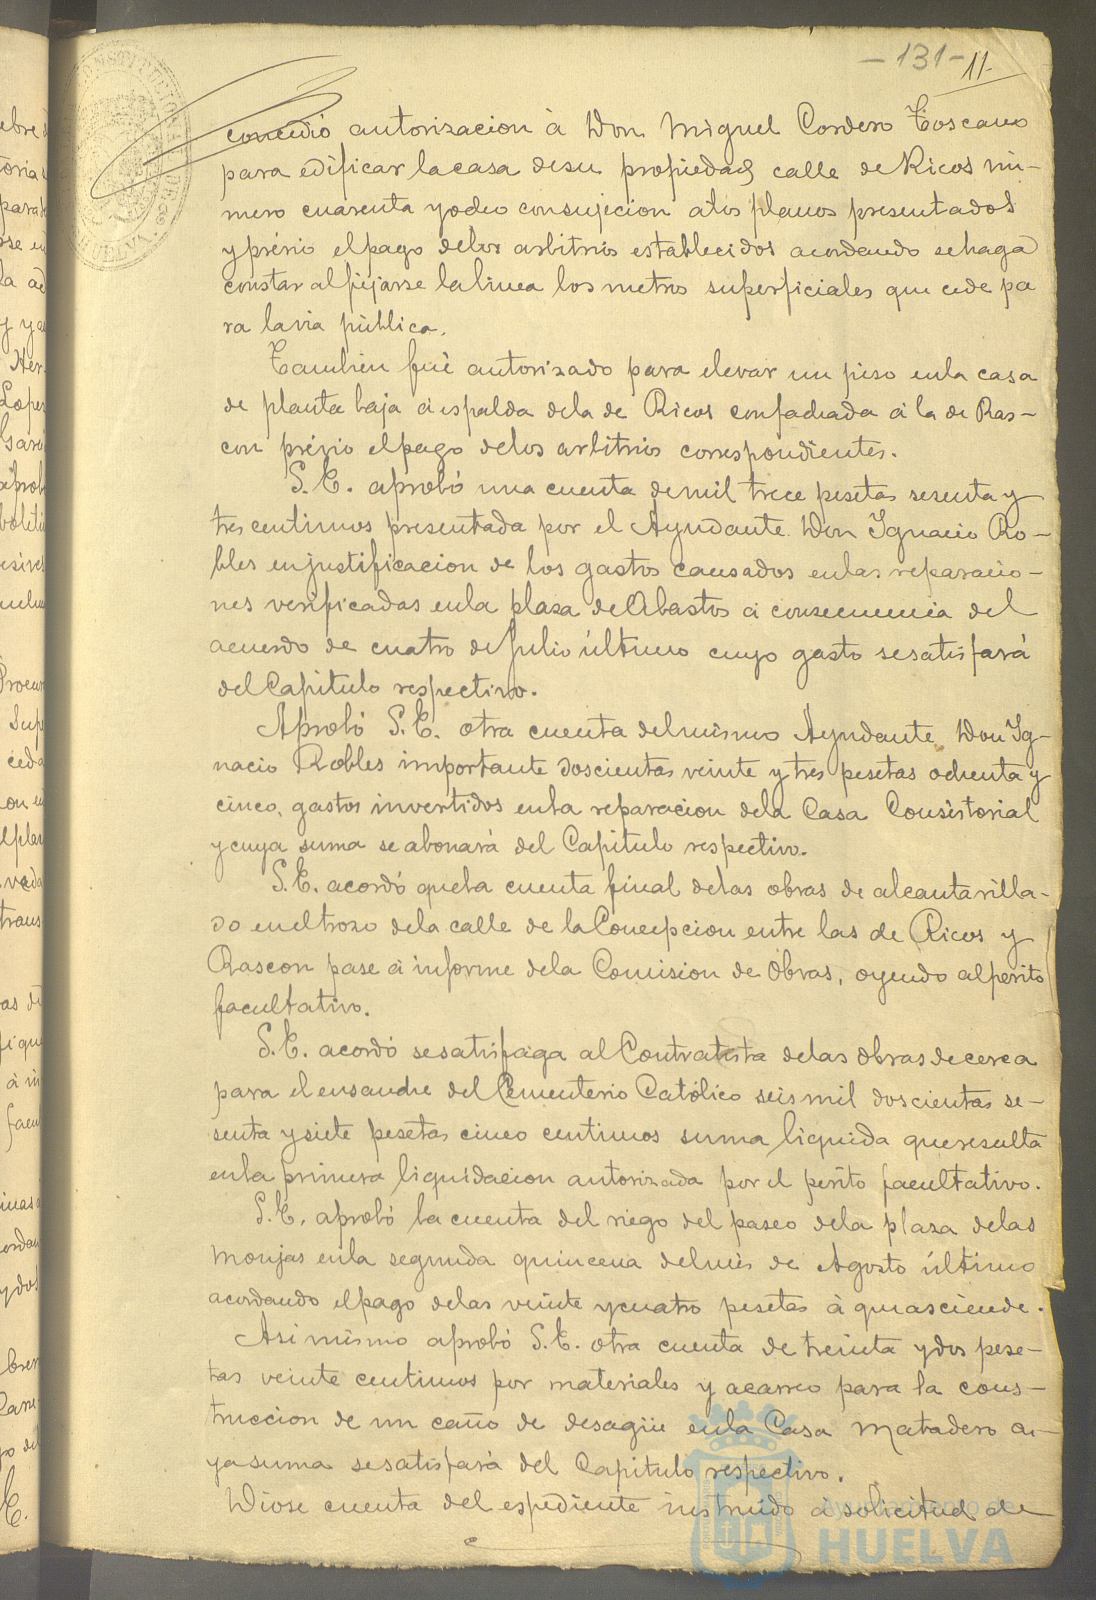 -131-
11-
concedió autorizacion à Don Miguel Cordero Toscano
para edificar la casa de su propiedad calle de Ricos nú-
mero cuarenta y ocho con sujecion a los planos presentados
y prévio el pago de los arbitrios establecidos acordando se haga
constar al fijarse la linea los metros superficiales que cede pa
ra la via pública.
Tambien fué autorizado para elevar un piso en la casa
de planta baja á espalda de la de Ricos con fachada á la de Ras-
con prévio el pago de los arbitrios correspondientes.
S.E. aprobó una cuenta de mil trece pesetas sesenta y
tres centimos presentada por el Ayudante Don Ignacio Ro-
bles en justificacion de los gastos causados en las reparacio-
nes verificadas en la plaza de Abastos á consecuencia del
acuerdo de cuatro de Julio último cuyo gasto se satisfará
del Capitulo respectivo.
Aprobó S.E. otra cuenta del mismo Ayudante Don Ig-
nacio Robles importante doscientas veinte y tres pesetas ochenta y
cinco, gastos invertidos en la reparacion de la Casa Consistorial
y cuya suma se abonará del Capitulo respectivo.
S.E. acordó que la cuenta final de las obras de alcantarilla-
do en el trozo de la calle de la Concepcion entre las de Ricos y
Rascon pase á informe de la Comision de Obras, oyendo al perito
facultativo.
S.E. acordó se satisfaga al Contratista de las obras de cerca
para el ensanche del Cementerio Católico seis mil doscientas se-
senta y siete pesetas cinco centimos suma liquida que resulta
en la primera liquidacion autorizada por el perito facultativo.
S.E. aprobó la cuenta del riego del paseo de la plaza de las
Monjas en la segunda quincena del mes de Agosto último
acordando el pago de las veinte y cuatro pesetas à que asciende.
Asi mismo aprobó S.E. otra cuenta de treinta y dos pese-
tas veinte centimos por materiales y acarreo para la cons-
truccion de un caño de desagüe en la Casa Matadero cu-
ya suma se satisfará del Capitulo respectivo.
Diose cuenta del espediente instruido á solicitud de
Ayuntamiento de
HUELVA